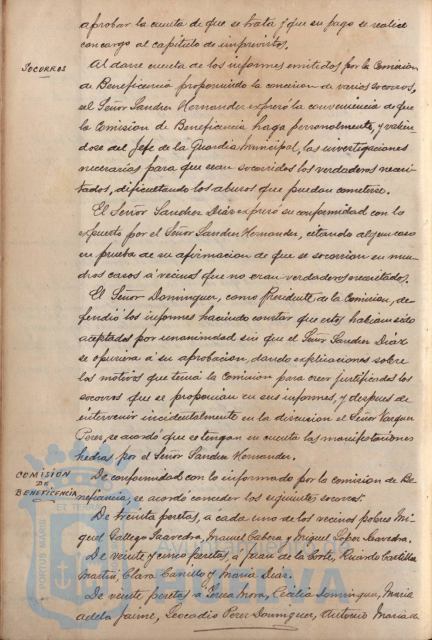 aprobar la cuenta de que se trata y que su pago se realice
con cargo al capítulo de imprevistos.
SOCORROS
Al darse cuenta de los informes emitidos por la Comision
de Beneficencia proponiendo la concesion de varios socorros,
el Señor Sanchez Hernandez expresó la conveniencia de que
la Comision de Beneficencia haga personalmente, y valien
dose del Jefe de la Guardia Municipal, las investigaciones
necesarias para que sean socorridos los verdaderos necesi
tados, dificultando los abusos que puedan cometerse.
El Señor Sanchez Diaz expresó su conformidad con lo
expuesto por el Señor Sanchez Hernandez, citando algun caso
en prueba de su afirmacion de que se socorrian en mu
chos casos á vecinos que no eran verdaderos necesitados.
El Señor Dominguez, como Presidente de la Comision, de
fendió los informes haciendo constar que estos habian sido
aceptados por unanimidad sin que el Señor Sanchez Diaz
se opusiera á su aprobacion, dando explicaciones sobre
los motivos que tenia la Comision para creer justificados los
socorros que se proponian en sus informes, y despues de
intervenir incidentalmente en la discusion el Señor Vazquez
Perez, se acordó que se tengan en cuenta las manifestaciones
hechas por el Señor Sanchez Hernandez.
COMISION
DE
BENEFICENCIA
De conformidad con lo informado por la comision de Be
neficencia, se acordó conceder los siguientes socorros:
De treinta pesetas, á cada uno de los vecinos pobres Mi
guel Gallego Saavedra, Manuel Cabera y Miguel Lopez Saavedra.
De veinte y cinco pesetas á Juan de la Corte, Ricardo Castilla
Martin, Clara Carrillo y Maria Diaz.
De veinte pesetas á Teresa Mora, Cecilia Dominguez, Maria
Adela Jaime, Leocadio Perez Dominguez, Antonio Maria de
PORTUS MARIS
ET TERRAE